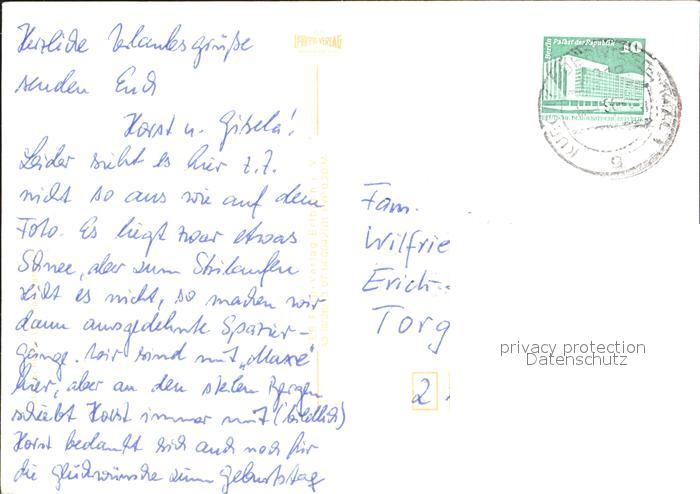 Herzliche Urlaubsgrüße
senden Euch
Horst u. Gisela!
Leider sieht es hier z.Z.
nicht so aus wie auf dem
Foto. Es liegt zwar etwas
Schnee, aber zum Skilaufen
reicht es nicht, so machen wir
dann ausgedehnte Spazier-
gänge. Wir sind mit „Maxe"
hier, aber an den steilen Bergen
schiebt Horst immer mit (bildlich)
Horst bedankt sich auch noch für
die Glückwünsche zum Geburtstag
VERLAG
Berlin Palast der Republik
10
Fam.
Wilfrie
Erich-
Torg
2
privacy protection
Datenschutz